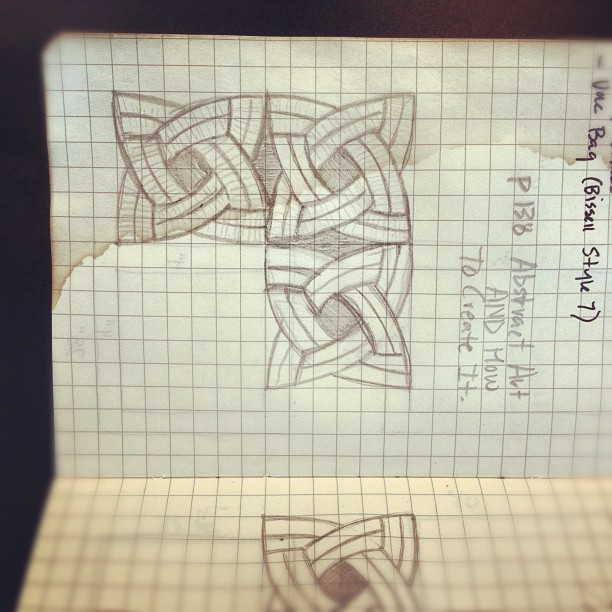 - Vac Bag (Bissell Style 7)
P 138 Abstract Art
AND How
To Create It.